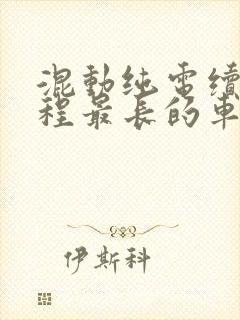 混動纯電續
程最長的車
伊斯科